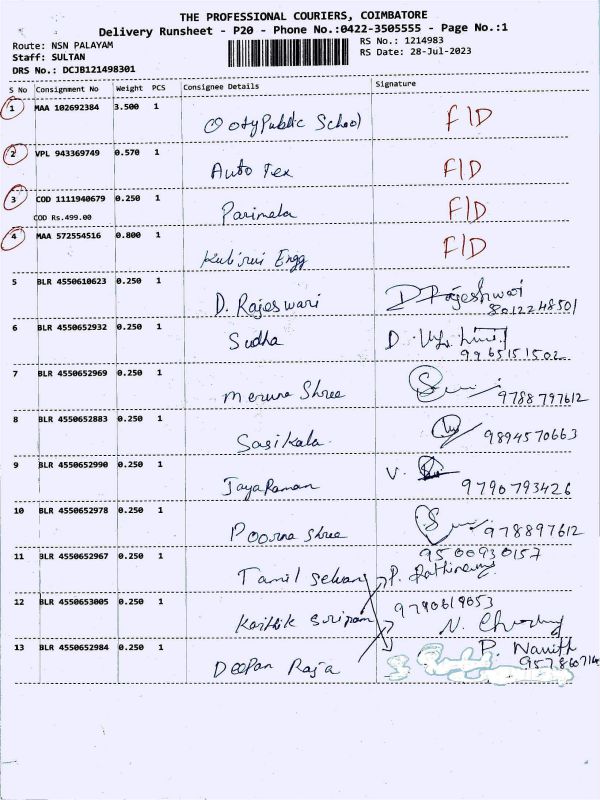 THE PROFESSIONAL COURIERS, COIMBATORE
Delivery Runsheet - P20 - Phone No.:0422-3505555 - Page No.:1
Route: NSN PALAYAM
Staff: SULTAN
DRS No.: DCJB121498301
RS No.: 1214983
RS Date: 28-Jul-2023
S No Consignment No Weight PCS Consignee Details Signature
1 MAA 102692384 3.500 1 Ooty Public School FID
2 VPL 943369749 0.570 1 Auto Tex FID
3 COD 1111940679 0.250 1 Parimela FID
COD Rs.499.00
4 MAA 572554516 0.800 1 Engg FID
5 BLR 4550610623 0.250 1 D. Rajeswari D Rajeshwari
8012248501
6 BLR 4550652932 0.250 1 Sudha D.
9965151502
7 BLR 4550652969 0.250 1 Meruna Shree 9788797612
8 BLR 4550652883 0.250 1 Sasikala 9894570663
9 BLR 4550652990 0.250 1 JayaRaman V.
9790793426
10 BLR 4550652978 0.250 1 Poorna Shree 978897612
9500930157
11 BLR 4550652967 0.250 1 Tamil Selvan P.
12 BLR 4550653005 0.250 1 Karthik Sriram 9790619053
N.
13 BLR 4550652984 0.250 1 Deepan Raja P. Navith